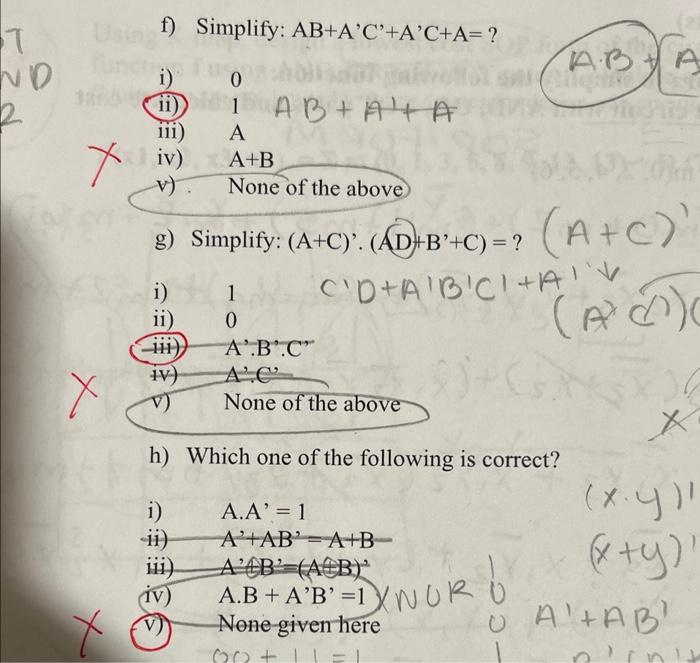 f) Simplify: AB+A’C’+A’C+A= ?
A.B + A
ND
2
i) 0
ii) 1 AB + A' + A
iii) A
iv) A+B
v) . None of the above
g) Simplify: (A+C)’. (AD+B’+C) = ? (A+C)'
i) 1 C'D+A'B'C'+A'
ii) 0 (A' C')(
iii) A’.B’.C’
iv) A’.C’
v) None of the above
x
h) Which one of the following is correct?
i) A.A’ = 1 (x.y)'
ii) A’+AB’ = A+B
iii) A’⊕B’=(A⊕B)’ (x+y)'
iv) A.B + A’B’ =1 XNOR
v) None given here 0 A'+AB'
00 + 11 = 1